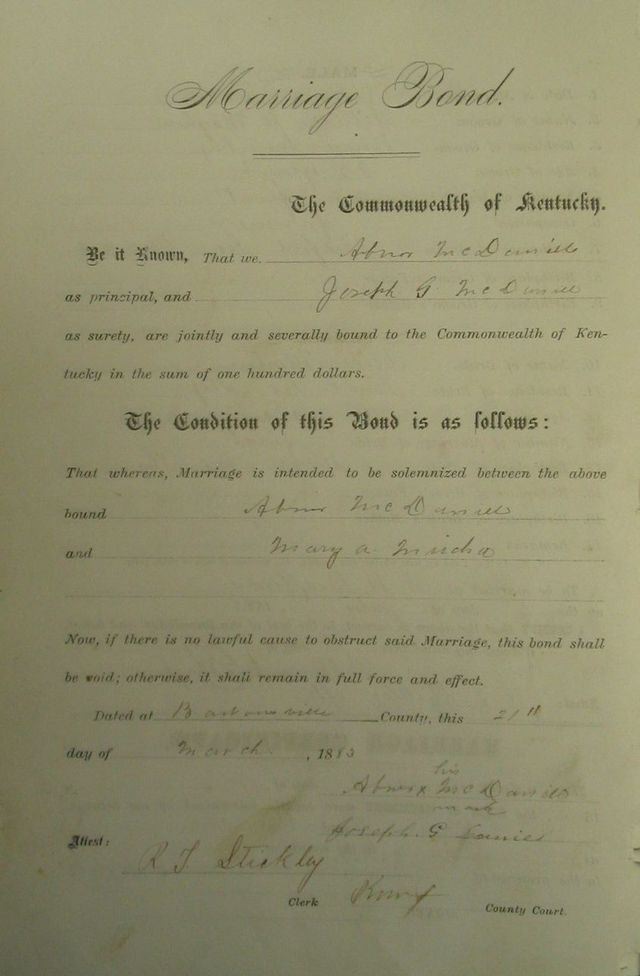 Marriage Bond.
The Commonwealth of Kentucky.
Be it Known, That we Abner McDaniell
as principal, and Joseph G McDaniell
as surety, are jointly and severally bound to the Commonwealth of Ken-
tucky in the sum of one hundred dollars.
The Condition of this Bond is as follows:
That whereas, Marriage is intended to be solemnized between the above
bound Abner McDaniell
and Mary a.
Now, if there is no lawful cause to obstruct said Marriage, this bond shall
be void; otherwise, it shall remain in full force and effect.
Dated at County, this 21th
day of March, 1883
his
Abner x McDaniell
mark
Joseph. G
Attest:
R T Stickley
Clerk Knox County Court.